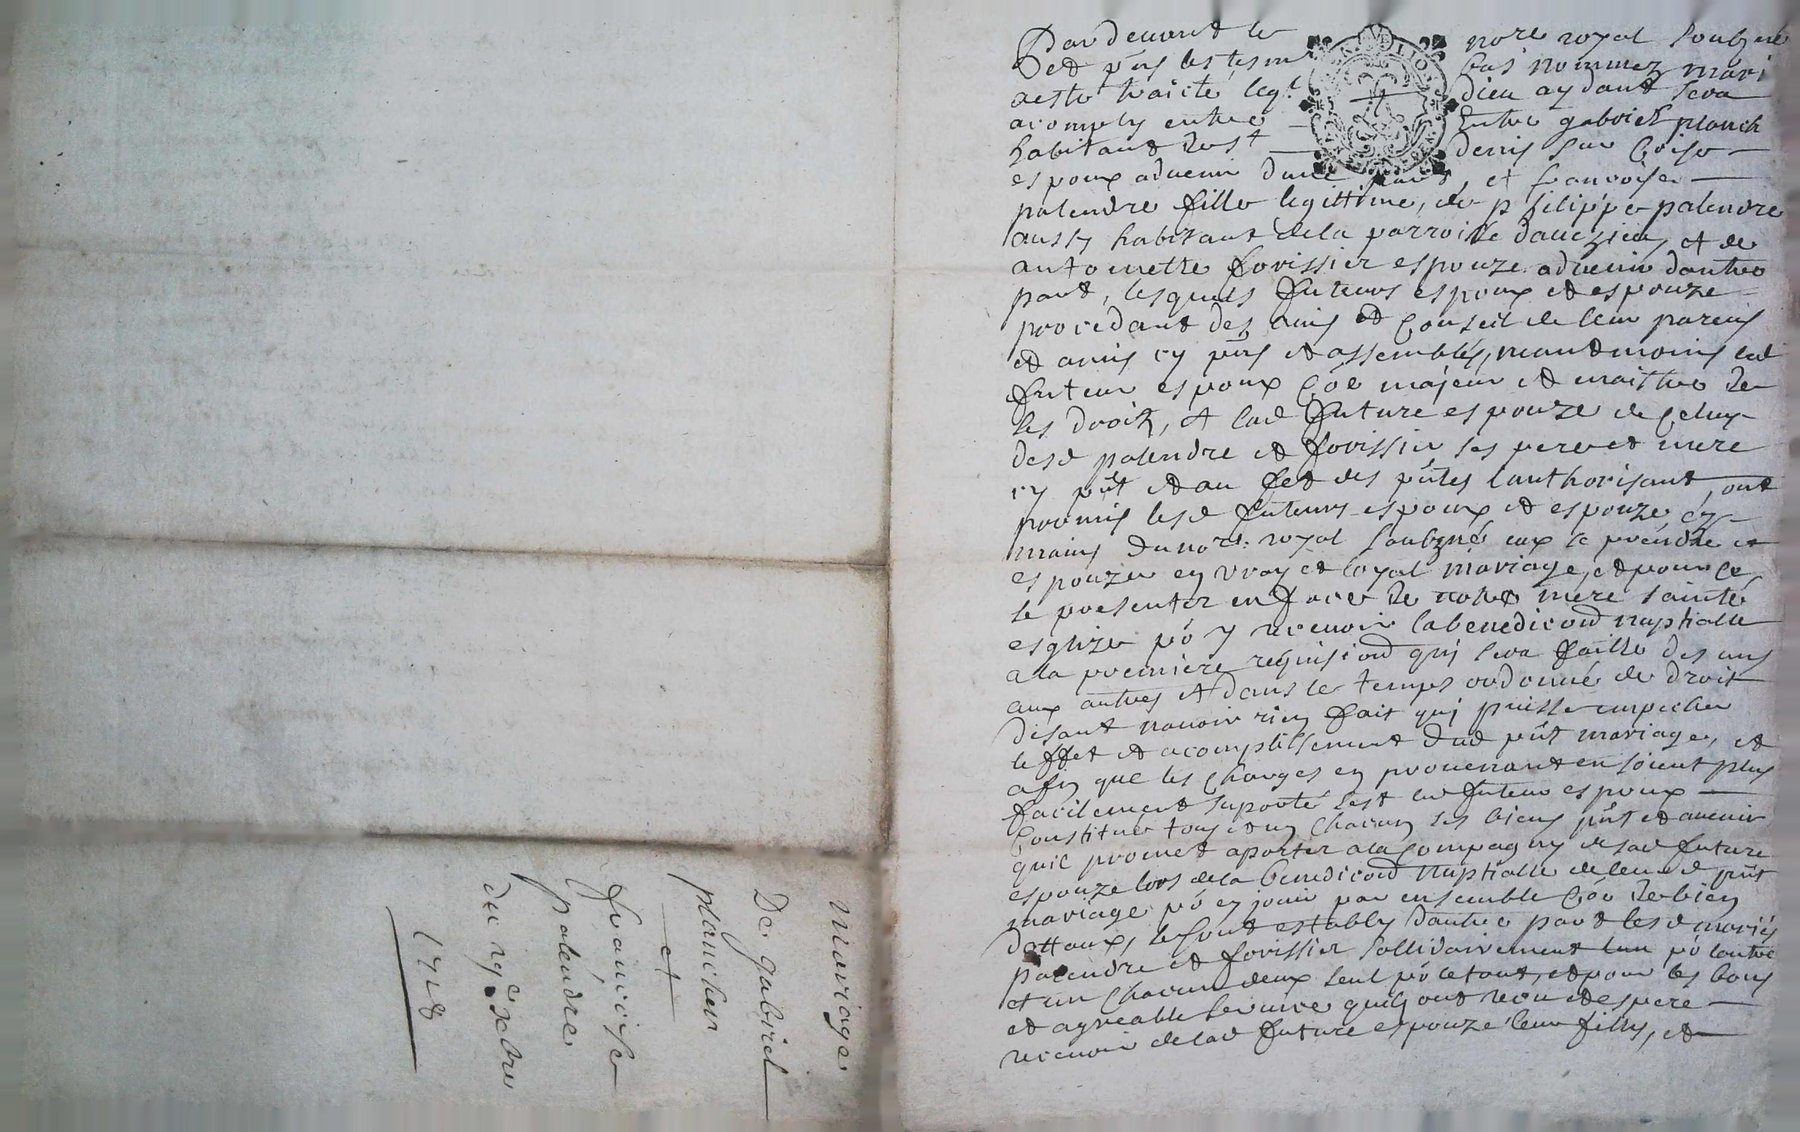 Pardevant le nore royal soubzné
et pns les tesm bas nommez mari
a este traicté leql dieu aydant sera
acomply entre entre gabriel planch
habitant de st denis sur Coise
espoux advenir dune part, et francoise
palendre fille legittime, de philippe palendre
aussy habitant de la parroisse daveizieu, et de
antoinette forissier espouze advenir dautre
part, lesquels futeurs espoux et espouze
procedant des avis et Conseil de leur parens
et amis cy pns et assemblés, neantmoins led
futeur espoux Coe majeur et maistre de
ses droits, et lad future espouze de Celuy
desd palendre et forissier ses pere et mere
cy pnt et au fet des pntes lauthorisant, ont
promis lesd futeurs espoux et espouze, es
mains du nore royal soubzné eux se prendre et
espouzer en vray et loyal mariage, et pour Ce
se presenter en face de nostre mere sainte
esglize po y recevoir la benedicond nuptialle
a la premiere requisicond qui sera faitte des uns
aux autres et dans le temps ordonné de droit
disant navoir rien fait qui puisse empecher
leffet et acomplissement dud pnt mariage, et
afin que les Charges en provenant en soient plus
facilement suporté sest led futeur espoux
Constitué tous et un Chacun ses biens pnt et avenir
quil promet aporter a la Compagny de sad future
espouze lors de la benedicond nuptialle de leurd pnt
mariage po en jouir par ensemble Coe de bien
dottaux, se sont estably dautre part lesd mariés
palendre et forissier sollidairement lun po lautre
et un Chacun deux seul po le tout, et pour les bons
et agreable service quils ont receu et espere
recevoir de lad future espouze leur fille, et
mariage
De gabriel
plancher
et
francoise
palendre
du 29e xbre
1718